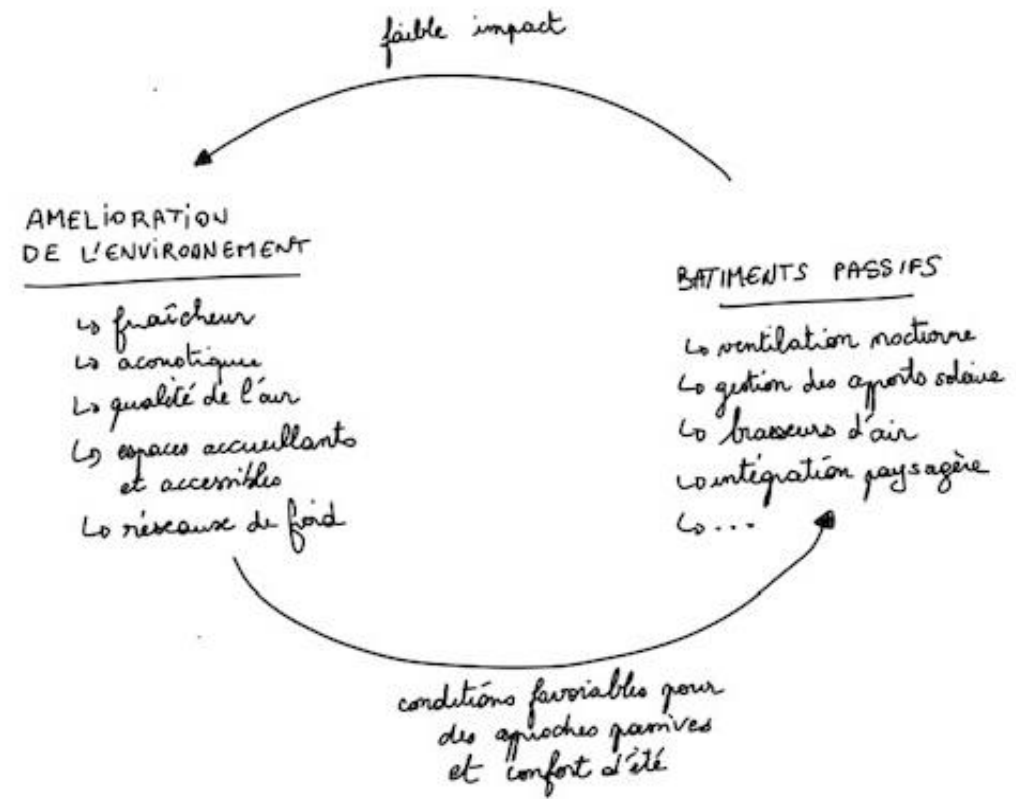 faible impact
AMELIORATION
DE L'ENVIRONNEMENT
↳ fraîcheur
↳ acoustique
↳ qualité de l'air
↳ espaces accueillants
et accessibles
↳ réseaux de froid
BATIMENTS PASSIFS
↳ ventilation nocturne
↳ gestion des apports solaire
↳ brasseurs d'air
↳ intégration paysagère
↳ ...
conditions favorables pour
des approches passives
et confort d'été